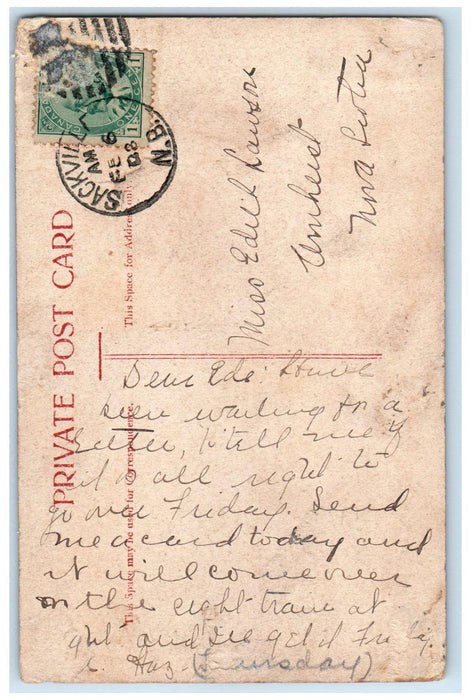 CANADA
1 CENT 1
SACKVILLE
AM
FE 6
08
N.B.
PRIVATE POST CARD
This Space for Address only
This Space may be used for Correspondence.
Miss Edith Lawson
Amherst
Nova Scotia
Dear Ede: I have
been waiting for a
letter, to tell me if
it is all right to
go over Friday. Send
me a card today and
it will come over
on the eight train at
and I'll get it Friday
Haz (Thursday)